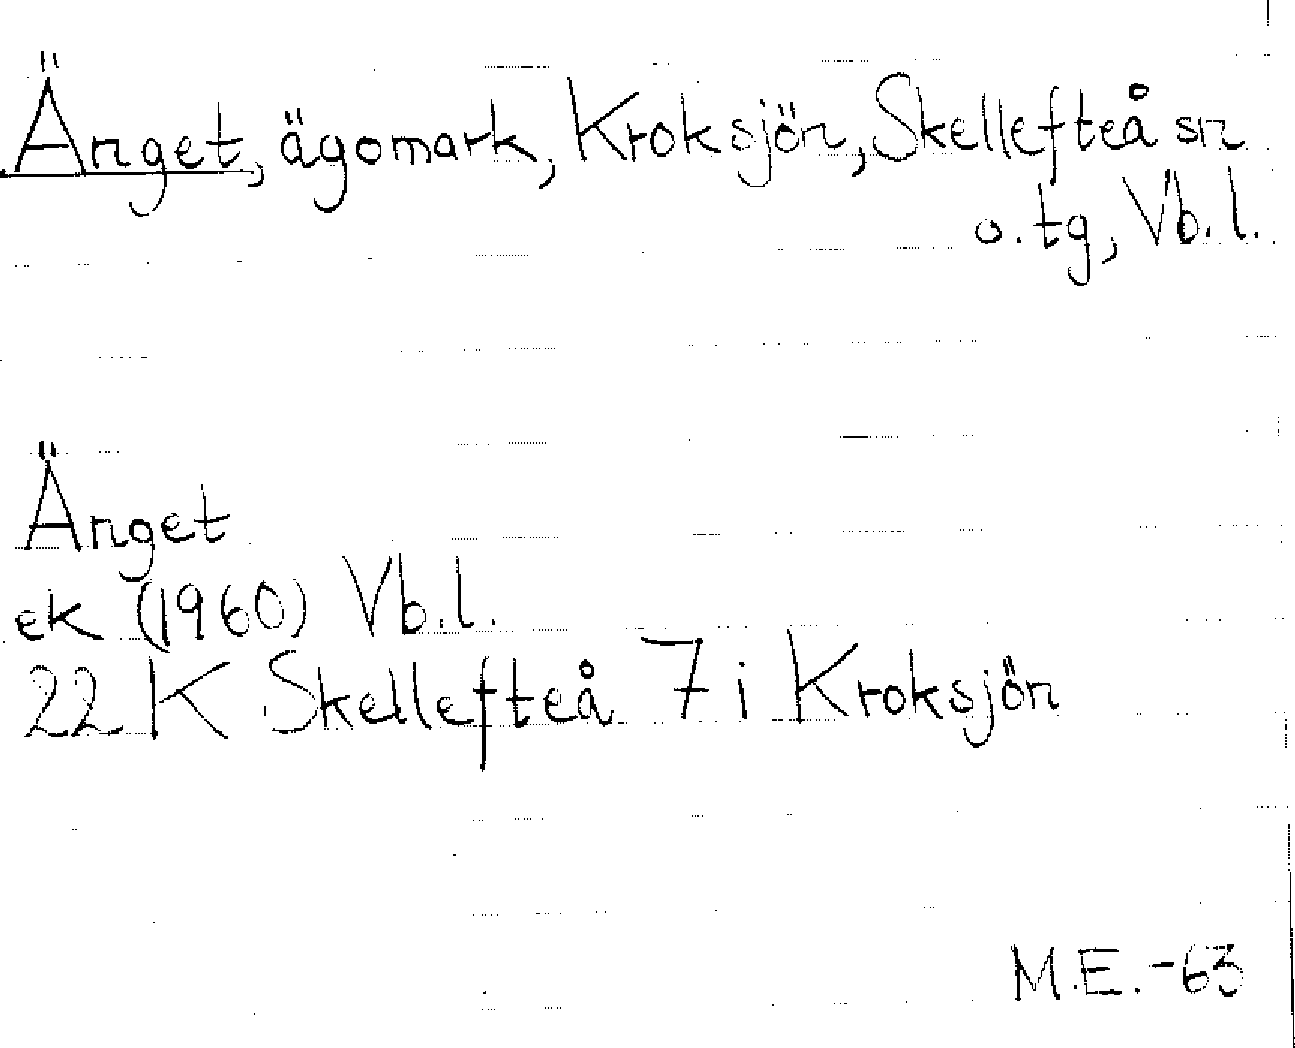 Änget, ägomark, Kroksjön, Skellefteå sn
o. tg, Vb. l.
Änget
ek (1960) Vb. l.
22 K Skellefteå 7 i Kroksjön
M.E. -63